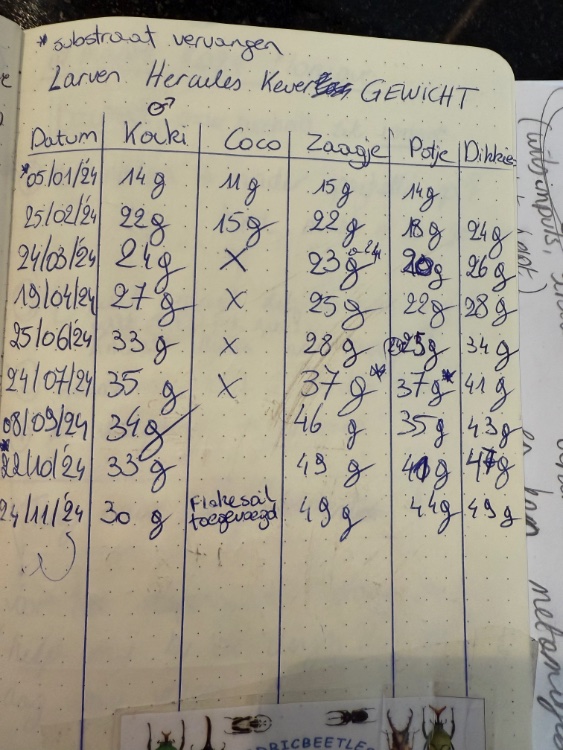 * substraat vervangen
Larven Hercules Kever GEWICHT
♂
Datum Kolki Coco Zaagje Potje Dikkie
*05/01/24 14g 11g 15g 14g
25/02/24 22g 15g 22g 18g 24g
24/03/24 24g X 23g 20g 26g
19/04/24 27g X 25g 22g 28g
25/06/24 33g X 28g 25g 34g
24/07/24 35g X 37g* 37g* 41g
08/09/24 34g 46g 35g 43g
*22/10/24 33g 49g 41g 47g
24/11/24 30g Flakesoil toegevoegd 49g 44g 49g